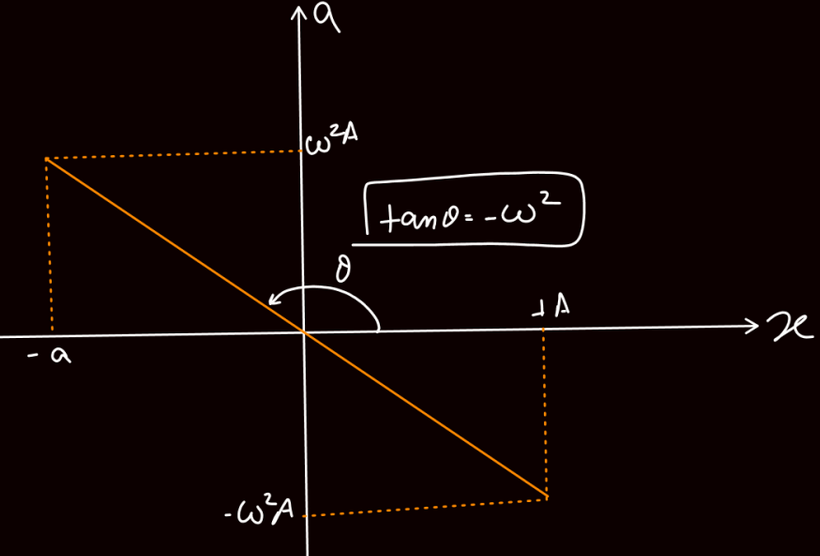 a
ω²A
tanθ = -ω²
θ
+A
x
-a
-ω²A